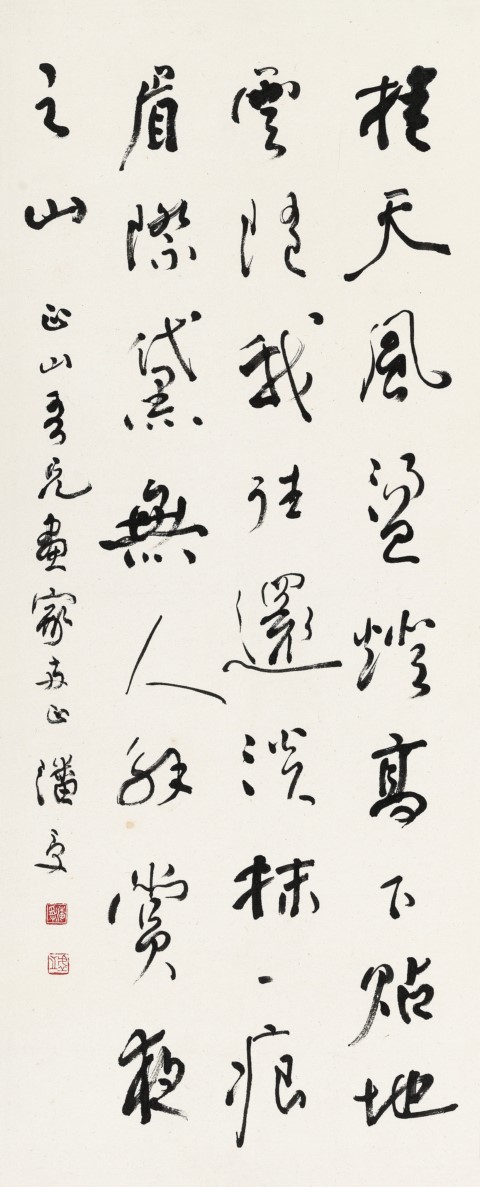 天風盪燈高下貼地
雲隨我往還淡抹一痕
眉際黛無人解賞夜
之山
正山吾兄畫家正 潘受